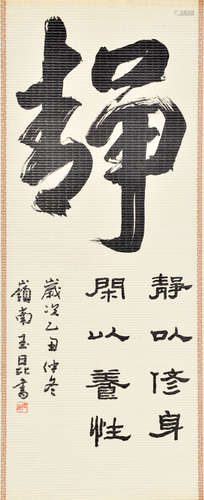 靜
靜以修身
閑以養性
歲次乙丑仲冬
嶺南玉昆書